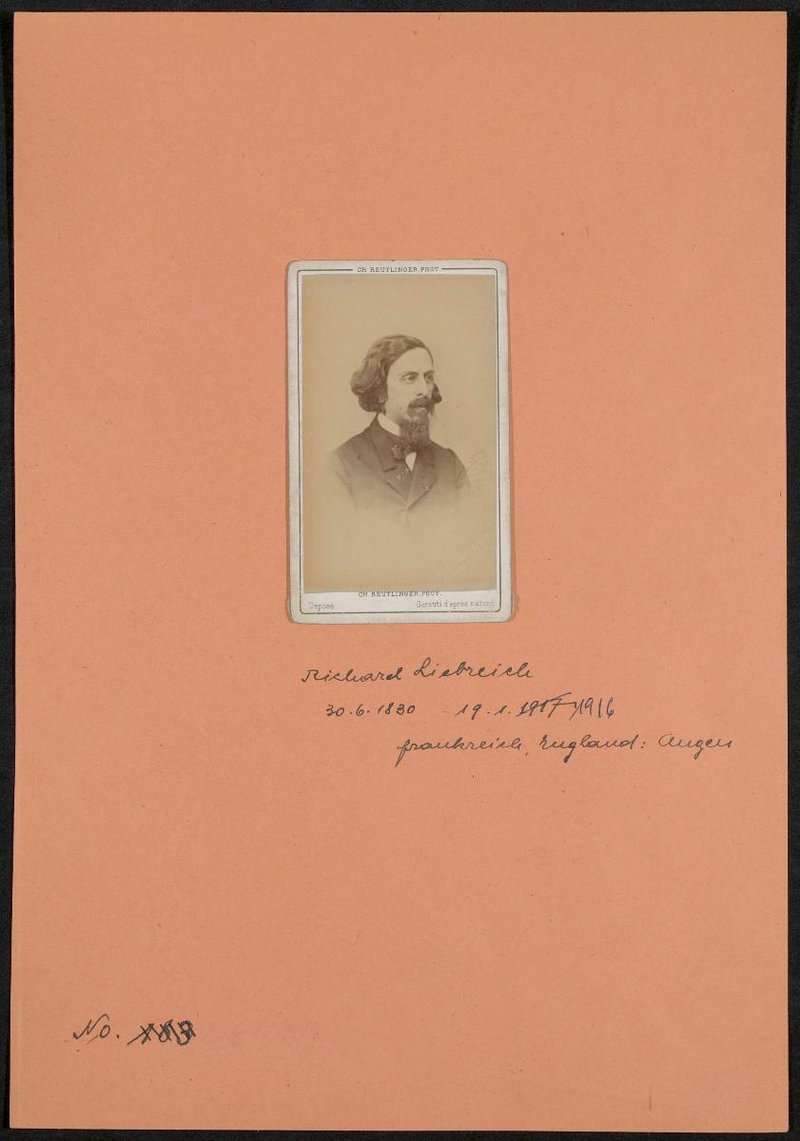 CH REUTLINGER PHOT.
CH REUTLINGER PHOT.
Déposé Garanti d'après nature
Richard Liebreich
30.6.1830 - 19.1. 1917 1916
Frankreich, England: Augen
No. 103